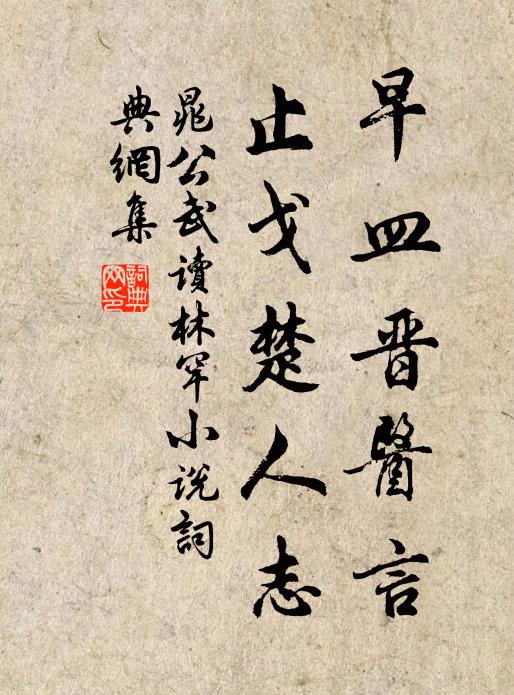 早皿晋醫言
止戈楚人志
晁公武讀林罕小说詞
典網集
詞典網印